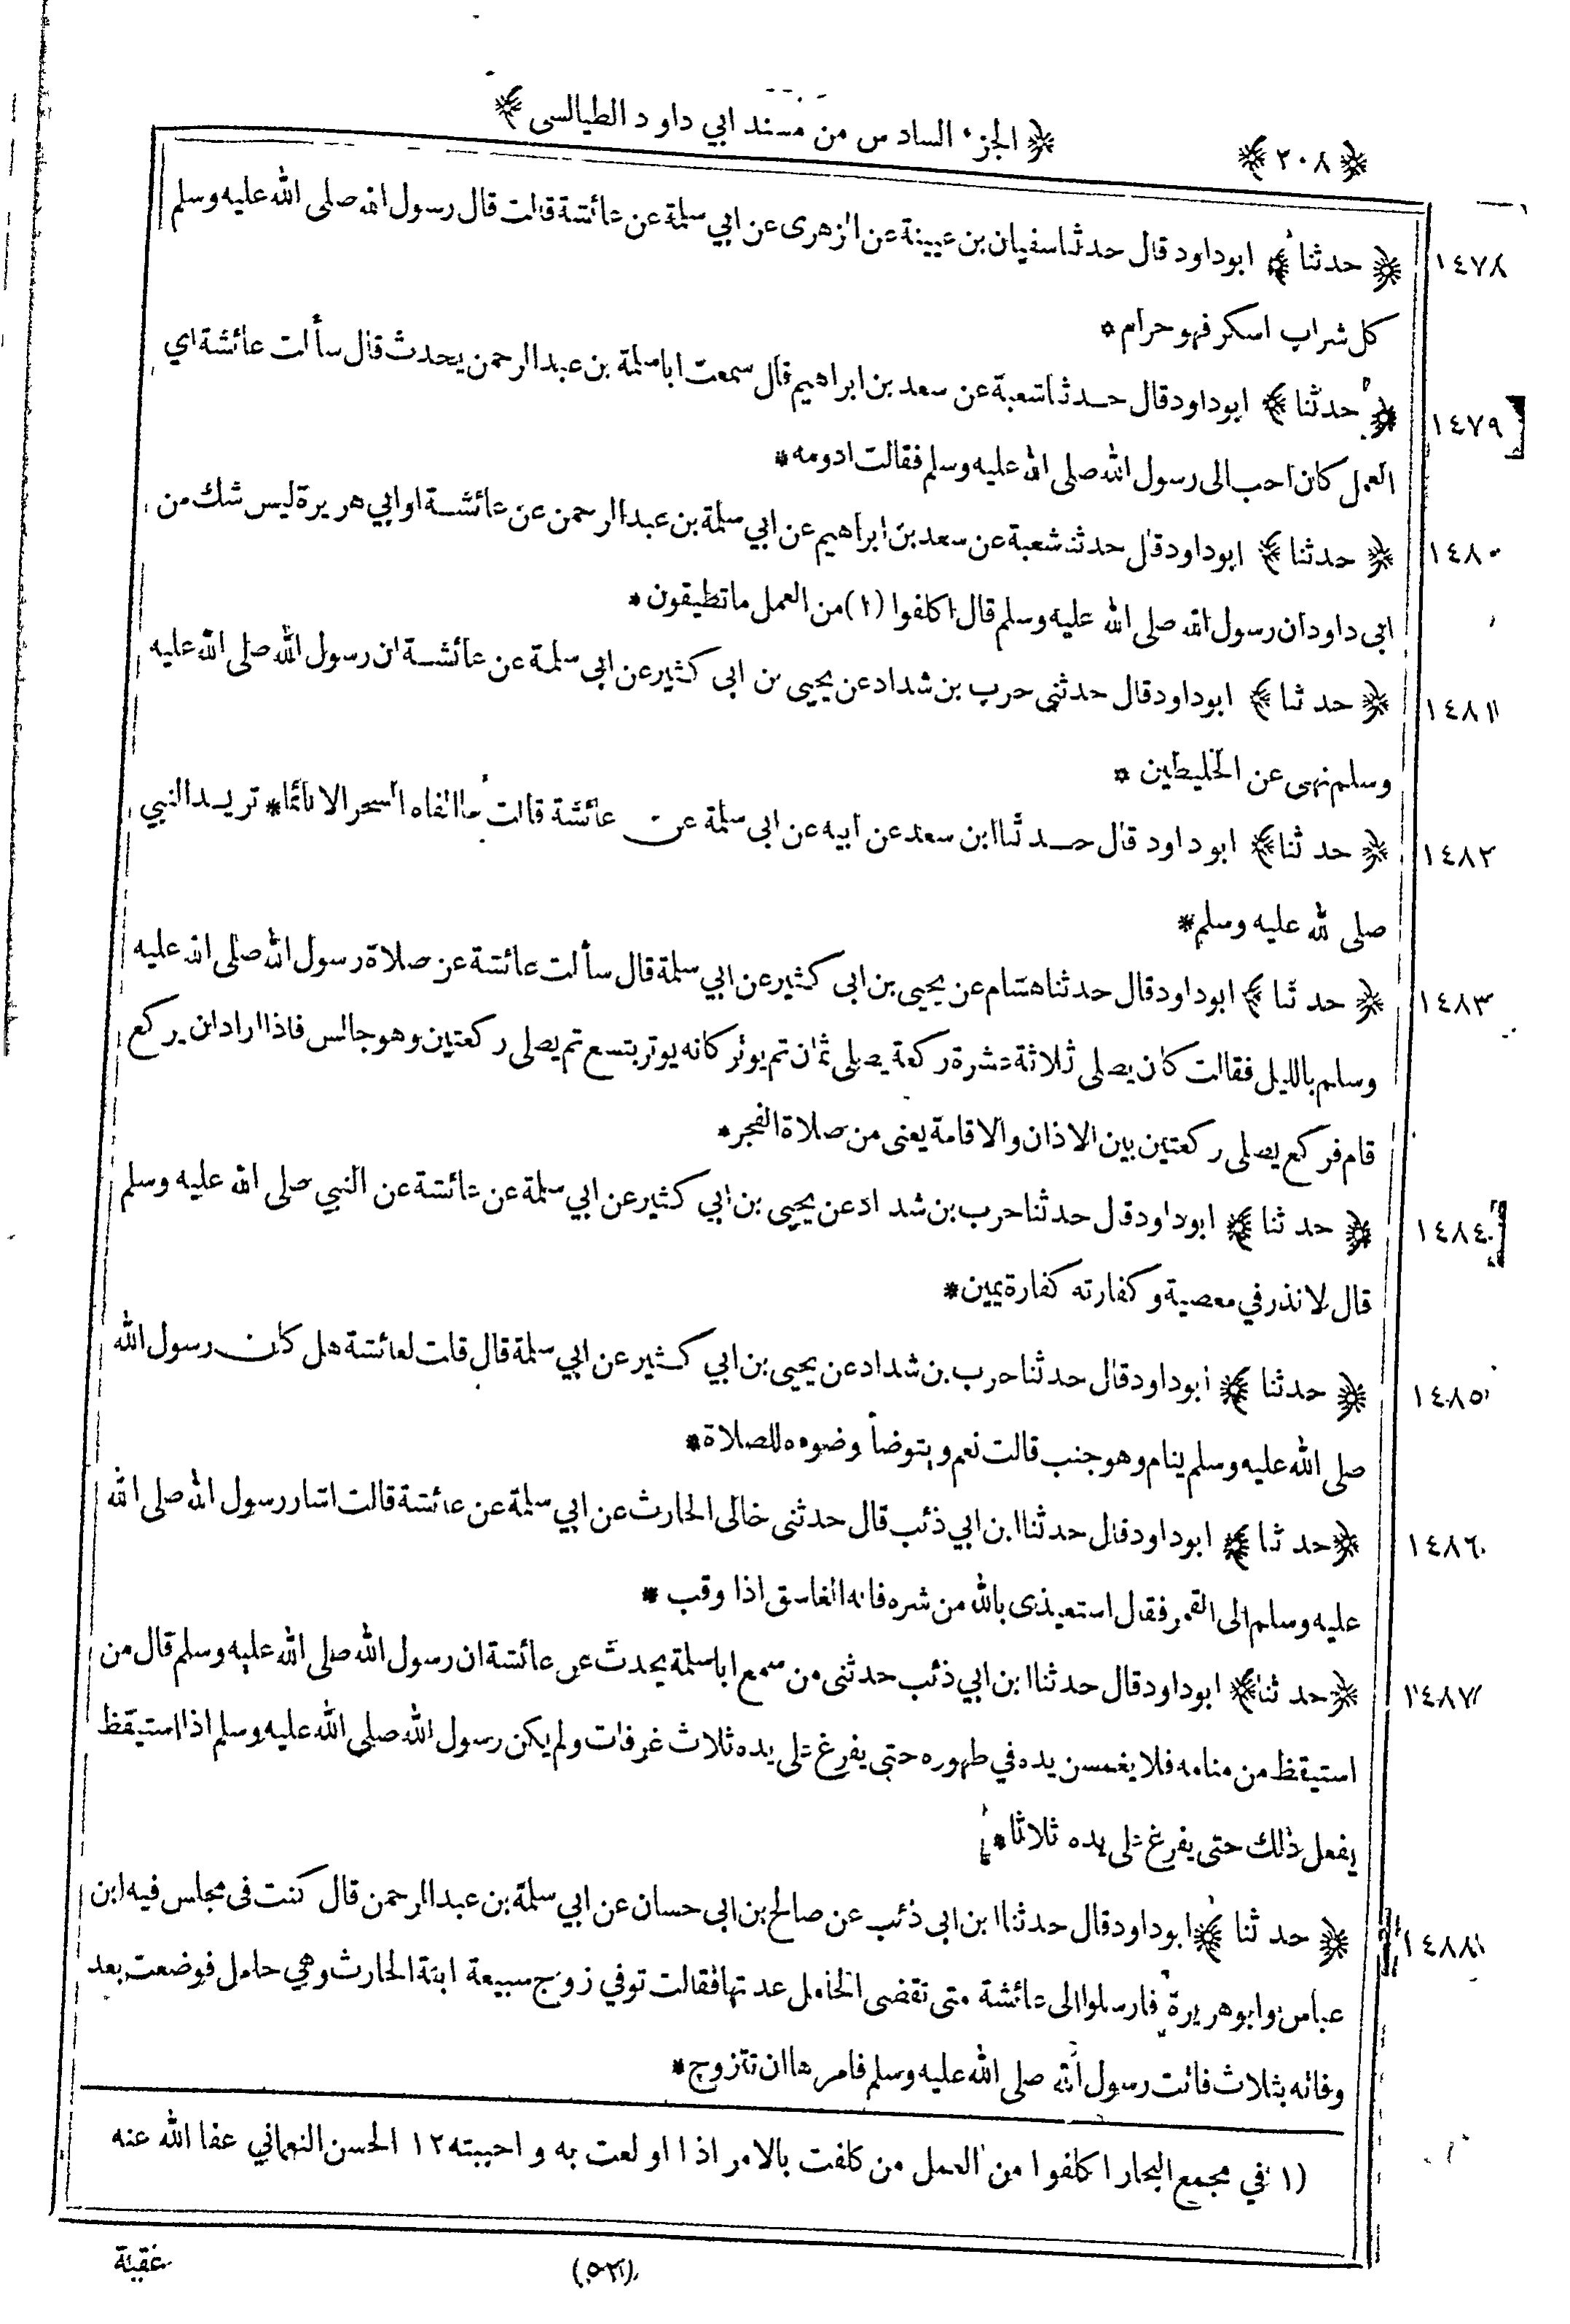 ﴿ ٢٠٨ ﴾ ﴿ الجزء السادس من مسند ابي داود الطيالسى ﴾
١٤٧٨ ﴿ حدثنا ﴾ ابوداود قال حدثنا سفيان بن عيينة عن الزهرى عن ابي سلمة عن عائشة قالت قال رسول الله صلى الله عليه وسلم
كل شراب اسكر فهو حرام *
١٤٧٩ ﴿ حدثنا ﴾ ابوداود قال حدثنا شعبة عن سعد بن ابراهيم قال سمعت اباسلمة بن عبدالرحمن يحدث قال سألت عائشة اي
العمل كان احب الى رسول الله صلى الله عليه وسلم فقالت ادومه *
١٤٨٠ ﴿ حدثنا ﴾ ابوداود قال حدثنا شعبة عن سعد بن ابراهيم عن ابي سلمة بن عبدالرحمن عن عائشة او ابي هريرة ليس شك من
ابى داود ان رسول الله صلى الله عليه وسلم قال اكلفوا (١) من العمل ما تطيقون *
١٤٨١ ﴿ حد ثنا ﴾ ابوداود قال حدثنى حرب بن شداد عن يحيى بن ابى كثير عن ابى سلمة عن عائشة ان رسول الله صلى الله عليه
وسلم نهى عن الخليطين *
١٤٨٢ ﴿ حد ثنا ﴾ ابو داود قال حدثنا ابن سعد عن ابيه عن ابى سلمة عن عائشة قالت ما الفاه السحر الا نائما * تريد النبي
صلى الله عليه وسلم *
١٤٨٣ ﴿ حد ثنا ﴾ ابوداود قال حدثنا هشام عن يحيى بن ابى كثير عن ابي سلمة قال سألت عائشة عن صلاة رسول الله صلى الله عليه
وسلم بالليل فقالت كان يصلى ثلاثة عشرة ركعة يصلى ثمان ثم يوتر كانه يوتر بتسع ثم يصلى ركعتين وهو جالس فاذا اراد ان يركع
قام فركع يصلى ركعتين بين الاذان والاقامة يعنى من صلاة الفجر *
١٤٨٤ ﴿ حد ثنا ﴾ ابوداود قال حدثنا حرب بن شداد عن يحيى بن ابي كثير عن ابي سلمة عن عائشة عن النبي صلى الله عليه وسلم
قال لا نذر في معصية وكفارته كفارة يمين *
١٤٨٥ ﴿ حدثنا ﴾ ابوداود قال حدثنا حرب بن شداد عن يحيى بن ابي كثير عن ابي سلمة قال قلت لعائشة هل كان رسول الله
صلى الله عليه وسلم ينام وهو جنب قالت نعم ويتوضأ وضوءه للصلاة *
١٤٨٦ ﴿ حد ثنا ﴾ ابوداود قال حدثنا ابن ابي ذئب قال حدثنى خالى الحارث عن ابي سلمة عن عائشة قالت اشار رسول الله صلى الله
عليه وسلم الى القمر فقال استعيذى بالله من شره فانه الغاسق اذا وقب *
١٤٨٧ ﴿ حد ثنا ﴾ ابوداود قال حدثنا ابن ابي ذئب حدثنى من سمع اباسلمة يحدث عن عائشة ان رسول الله صلى الله عليه وسلم قال من
استيقظ من منامه فلا يغمسن يده في طهوره حتى يفرغ على يده ثلاث غرفات ولم يكن رسول الله صلى الله عليه وسلم اذا استيقظ
يفعل ذلك حتى يفرغ على يده ثلاثا *
١٤٨٨ ﴿ حد ثنا ﴾ ابوداود قال حدثنا ابن ابى ذئب عن صالح بن ابى حسان عن ابي سلمة بن عبدالرحمن قال كنت فى مجلس فيه ابن
عباس وابوهريرة فارسلوا الى عائشة متى تقضى الحامل عدتها فقالت توفي زوج سبيعة ابنة الحارث وهي حامل فوضعت بعد
وفاته بثلاث فاتت رسول الله صلى الله عليه وسلم فامرها ان تتزوج *
(١) في مجمع البحار اكلفوا من العمل من كلفت بالامر اذا اولعت به واحببته ١٢ الحسن النعماني عفا الله عنه
(٥٢)